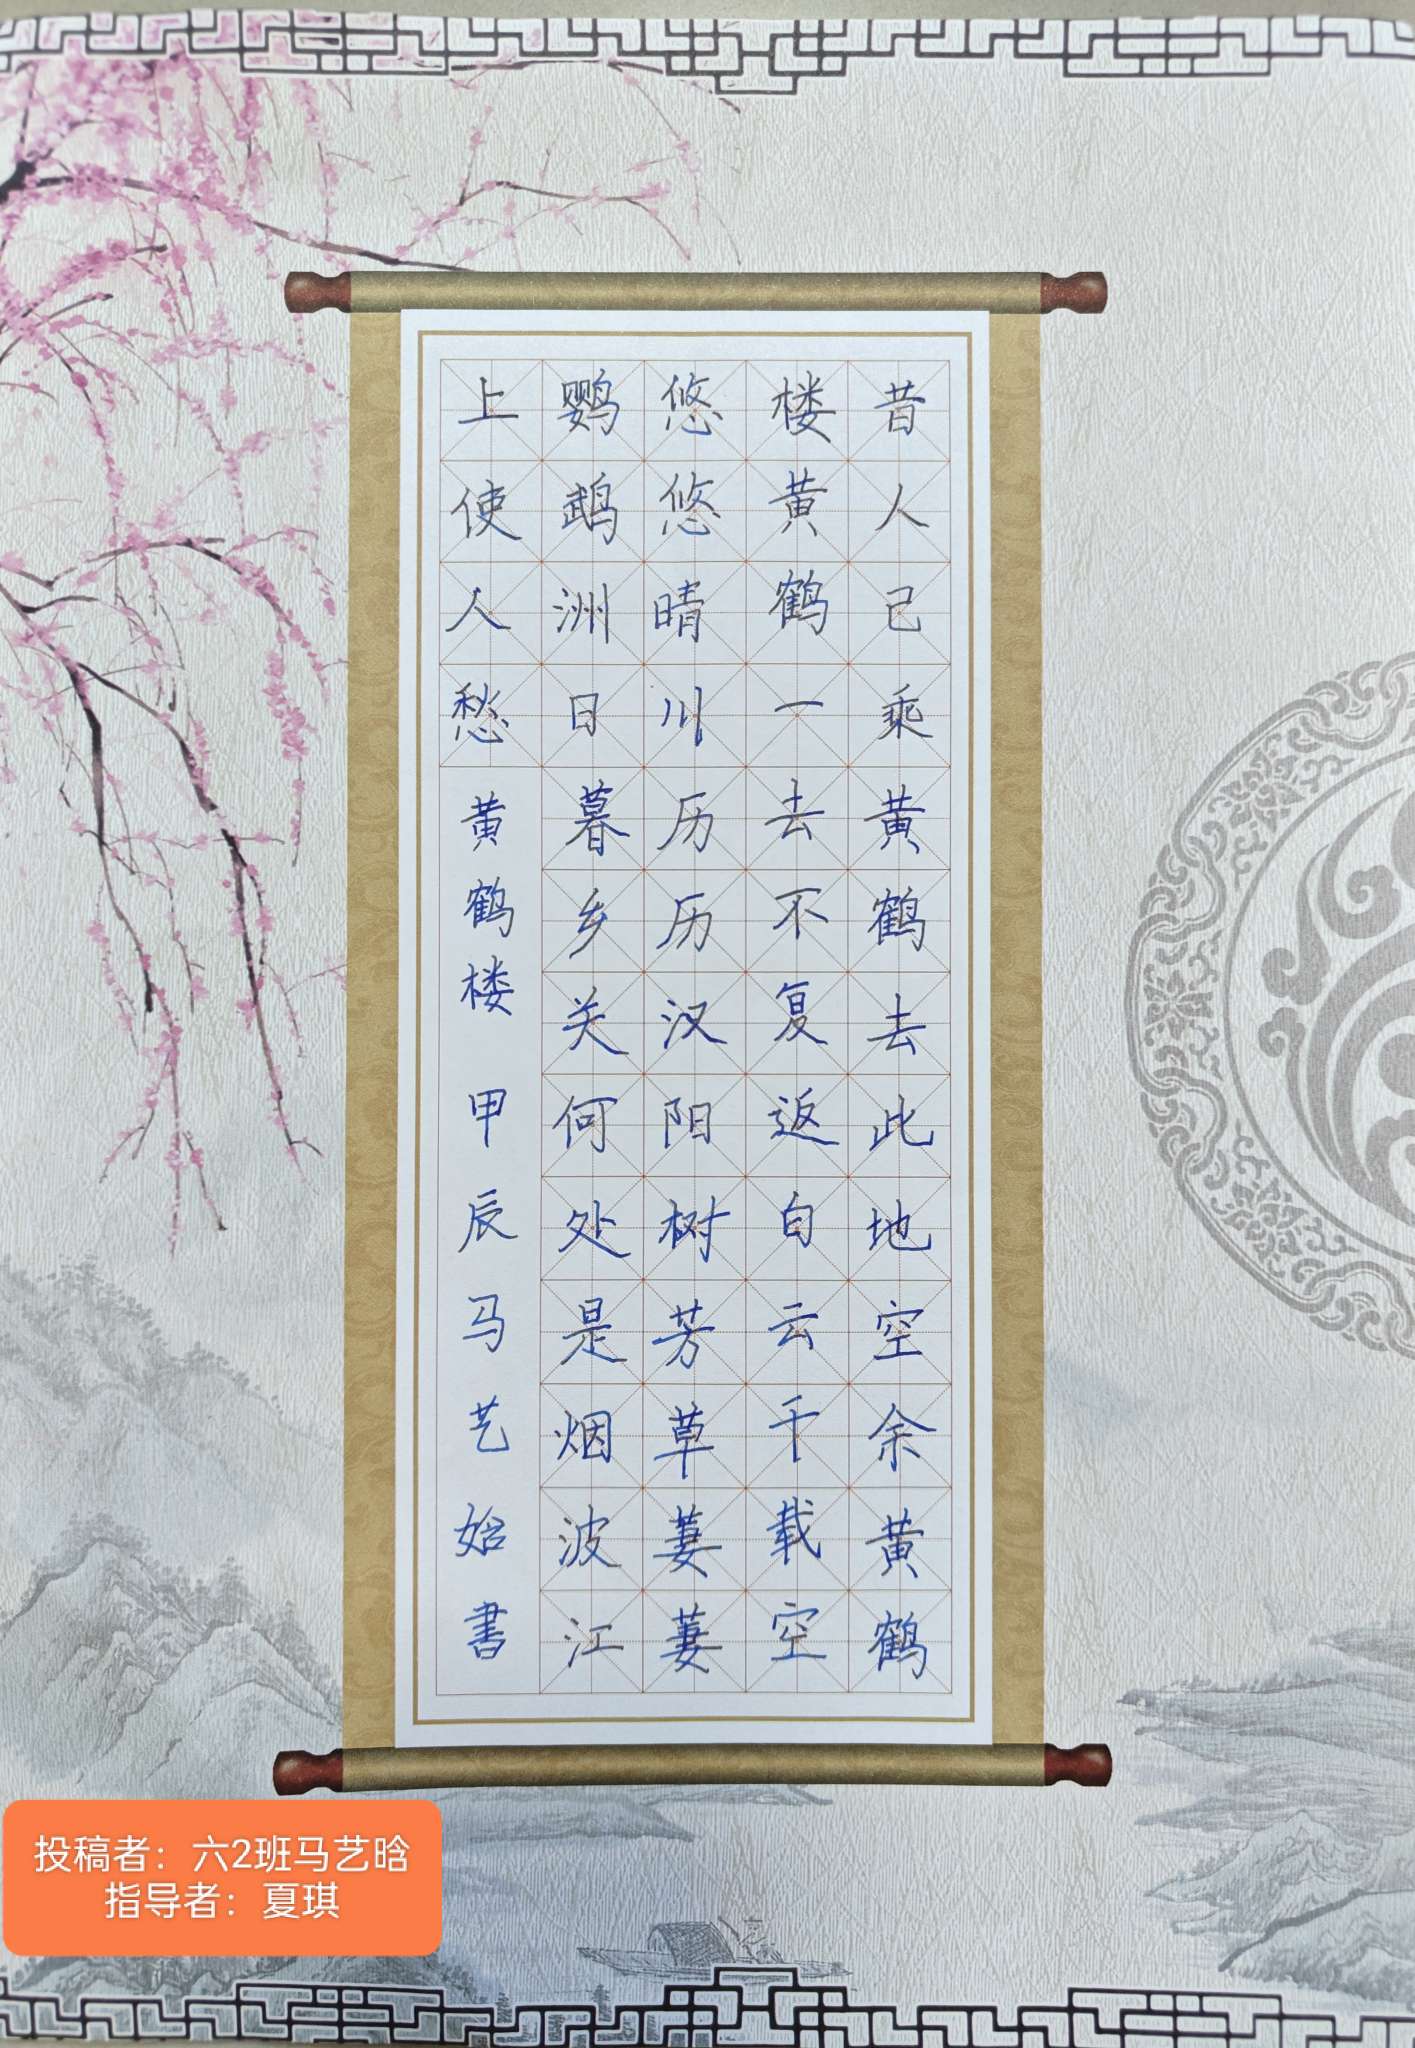 昔人已乘黄鹤去此地空余黄鹤
楼黄鹤一去不复返白云千载空
悠悠晴川历历汉阳树芳草萋萋
鹦鹉洲日暮乡关何处是烟波江
上使人愁 黄鹤楼 甲辰马艺晗書
投稿者：六2班马艺晗
指导者：夏琪